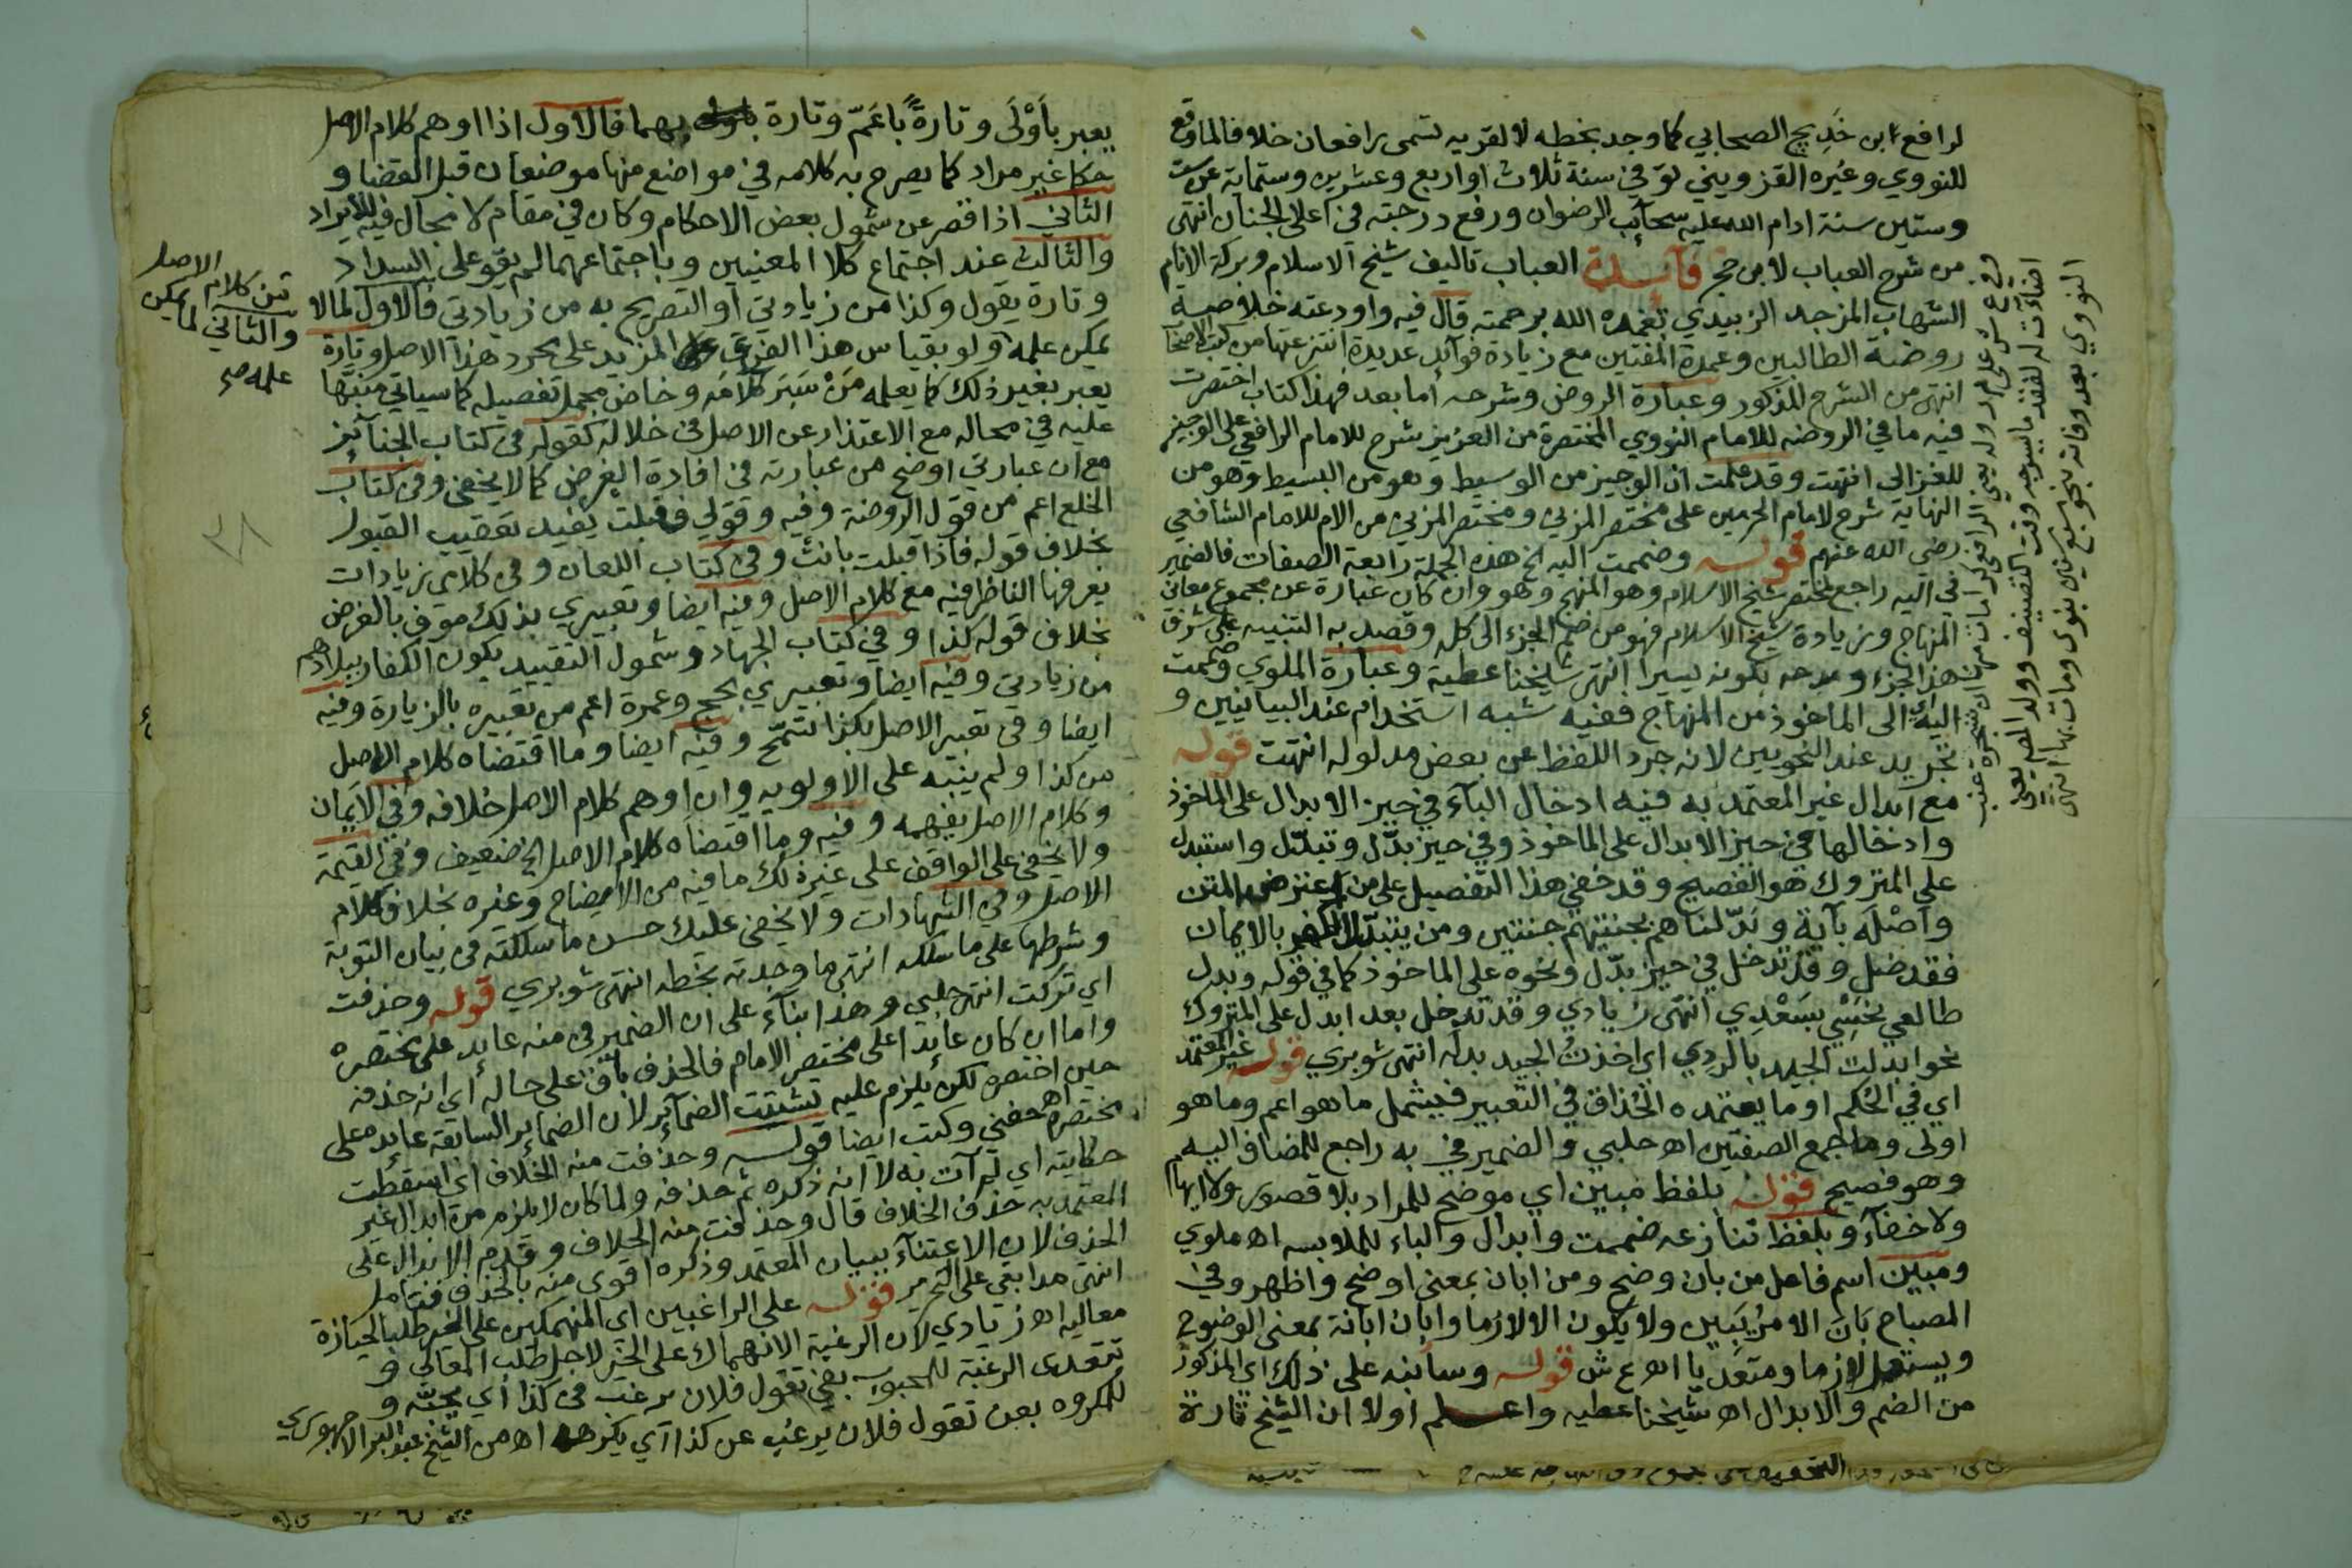 لرافع ابن خَدِيج الصحابي كما وجد بخطه لا لقريه تسمى رافعان خلافا لما وقع
للنووي وغيره القزويني توفي سنة ثلاث او اربع وعشرين وستماية عن ست
وستين سنة ادام الله عليه سحآئب الرضوان ورفع درجته في اعلا الجنان انتهى
من شرح العباب لابن حجر فآئدة العباب تاليف شيخ الاسلام وبركة الانام
الشهاب المزجد الزبيدي تغمده الله برحمته قال فيه واودعته خلاصة
روضة الطالبين وعمدة المفتين مع زيادة فوآئد عديدة انتزعتها من كتب الاصحاب
انتهى من الشرح المذكور وعبارة الروض وشرحه اما بعد فهذا كتاب اختصرت
فيه ما في الروضه للامام النووي المختصرة من العزيز شرح للامام الرافعي على الوجيز
للغزالي انتهت وقد علمت ان الوجيز من الوسيط وهو من البسيط وهو من
النهاية شرح لامام الحرمين على مختصر المزني ومختصر المزني من الام للامام الشافعي
رضي الله عنهم قوله وضممت اليه الخ هذه الجملة رابعة الصفات فالضمير
في اليه راجع لمختصر شيخ الاسلام وهو المنهج وهو وان كان عبارة عن مجموع معاني
المنهاج وزيادة شيخ الاسلام فهو من ضم الجزء الى كل وقصد به التنبيه على شرف
هذا الجزء ومدحه بكونه يسيرا انتهى شيخنا عطية وعبارة الملوي وضممت
اليه اي الى الماخوذ من المنهاج ففيه شبه استخدام عند البيانيين و
تجريد عند النحويين لانه جرد اللفظ عن بعض مدلوله انتهت قوله
مع ابدال غير المعتمد به فيه ادخال البآء في حيز الابدال على الماخوذ
وادخالها في حيز الابدال على الماخوذ وفي حيز بدّل وتبدّل واستبدل
على المتروك هو الفصيح وقد خفي هذا التفصيل على من اعترض المتن
واصْلَه بآية وبَدّلناهم بجنتيهم جنتين ومن يتبدّل الكفر بالايمان
فقد ضل وقد تدخل في حيز بدّل ونحوه على الماخوذ كما في قوله وبدل
طالعي نحسِي بسَعْدِي انتهى زيادي وقد تدخل بعد ابدل على المتروك
نحو ابدلت الجيد بالردي اي اخذتُ الجيد بدله انتهى شوبري قوله غير المعتمد
اي في الحُكم او ما يعتمده الحُذاق في التعبير فيشمل ما هو اعم وما هو
اولى وما جمع الصفتين اهـ حلبي والضمير في به راجع للمضاف اليه
وهو فصيح قوله بلفظ مبين اي موضح للمراد بلا قصور ولا ايهام
ولا خفآء وبلفظ تنازعه ضممت وابدال والباء للملابسه اهـ ملوي
ومبين اسم فاعل من بان وضح ومن ابان بمعنى اوضح واظهر وفي
المصباح بَانَ الامرُ يَبِين ولا يكون الا لازما وابان ابانة بمعنى الوضوح
ويستعمل لازما ومتعديا اهـ ع ش قوله وسأنبه على ذلك اي المذكور
من الضم والابدال اهـ شيخنا عطيه واعلم اولا ان الشيخ تارة
النووي بعد وفاته بنحو سبع سنين بنوى ومات بها انتهى
يعبر بأَوْلَى وتارةً بأعَمّ وتارة بهما فالاول اذا اوهم كلام الاصل
حكما غير مراد كما يصرح به كلامه في مواضع منها موضعان قبل القضا و
الثاني اذا قصر عن شمول بعض الاحكام وكان في مقام لا مجال فيه للايراد
والثالث عند اجتماع كلا المعنيين وباجتماعهما لم يقو على السداد
وتارة يقول وكذا من زيادتي او التصريح به من زيادتي فالاول لما لا
يمكن علمه ولو بقياس هذا الفرع المزيد على مجرد هذا الاصل وتارة
يعبر بغير ذلك كما يعلمه مَنْ سَبَر كلامَه وخاض مجمل تفصيله كما سياتي منبّها
عليه في محاله مع الاعتذار عن الاصل في خلاله كقوله في كتاب الجنآئز
مع ان عبارتي اوضح من عبارته في افادة الغرض كما لا يخفى وفي كتاب
الخلع اعم من قول الروضة وفيه وقولي فقبلت يفيد تعقيب القبول
بخلاف قوله فاذا قبلت بانت وفي كتاب اللعان وفي كلامي زيادات
يعرفها الناظر فيه مع كلام الاصل وفيه ايضا وتعبيري بذلك موفٍ بالغرض
بخلاف قوله كذا وفي كتاب الجهاد وشمول التقييد بكون الكفار ببلادهم
من زيادتي وفيه ايضا وتعبيري بحج وعمرة اعم من تعبيره بالزيارة وفيه
ايضا وفي تعبير الاصل بكذا تسمّح وفيه ايضا وما اقتضاه كلام الاصل
من كذا ولم ينبه على الاولويه وان اوهم كلام الاصل خلافه وفي الايمان
وكلام الاصل يفهمه وفيه وما اقتضاه كلام الاصل الخ ضعيف وفي القسمة
ولا يخفى على الواقف على غير ذلك ما فيه من الايضاح وغيره بخلاف كلام
الاصل وفي الشهادات ولا يخفى عليك حسن ما سلكته في بيان التوبة
وشرطها على ما سلكه انتهى ما وجدته بخطه انتهى شوبري قوله وحذفت
اي تركت انتهى حلبي وهذا بنآء على ان الضمير في منه عايد على مختصره
واما ان كان عآئدا على مختصر الامام فالحذف باق على حاله اي انه حذفه
حين اختصره لكن يلزم عليه تشتيت الضمآئر لان الضماير السابقة عايده على
مختصره اهـ حفني وكتب ايضا قوله وحذفت منه الخلاف اي اسقطت
حكايته اي لم آت به لا انه ذكره ثم حذفه ولما كان لا يلزم من ابدال غير
المعتمد به حذف الخلاف قال وحذفت منه الخلاف وقدم الابدال على
الحذف لان الاعتنآء ببيان المعتمد وذكره اقوى منه بالحذف فتامل
انتهى مدابغي على التحرير قوله على الراغبين اي المنهمكين على الخير طلبا لحيازة
معاليه اهـ زيادي لان الرغبة الانهماك على الخير لاجل طلب المعالي و
تتعدى الرغبة للمحبوب بفي تقول فلان يرغب في كذا اي يحبّه و
للمكروه بعن تقول فلان يرغب عن كذا اي يكرهه اهـ من الشيخ عبد البر الاجهوري
من كلام الاصل
والثاني لما يمكن
علمه صح